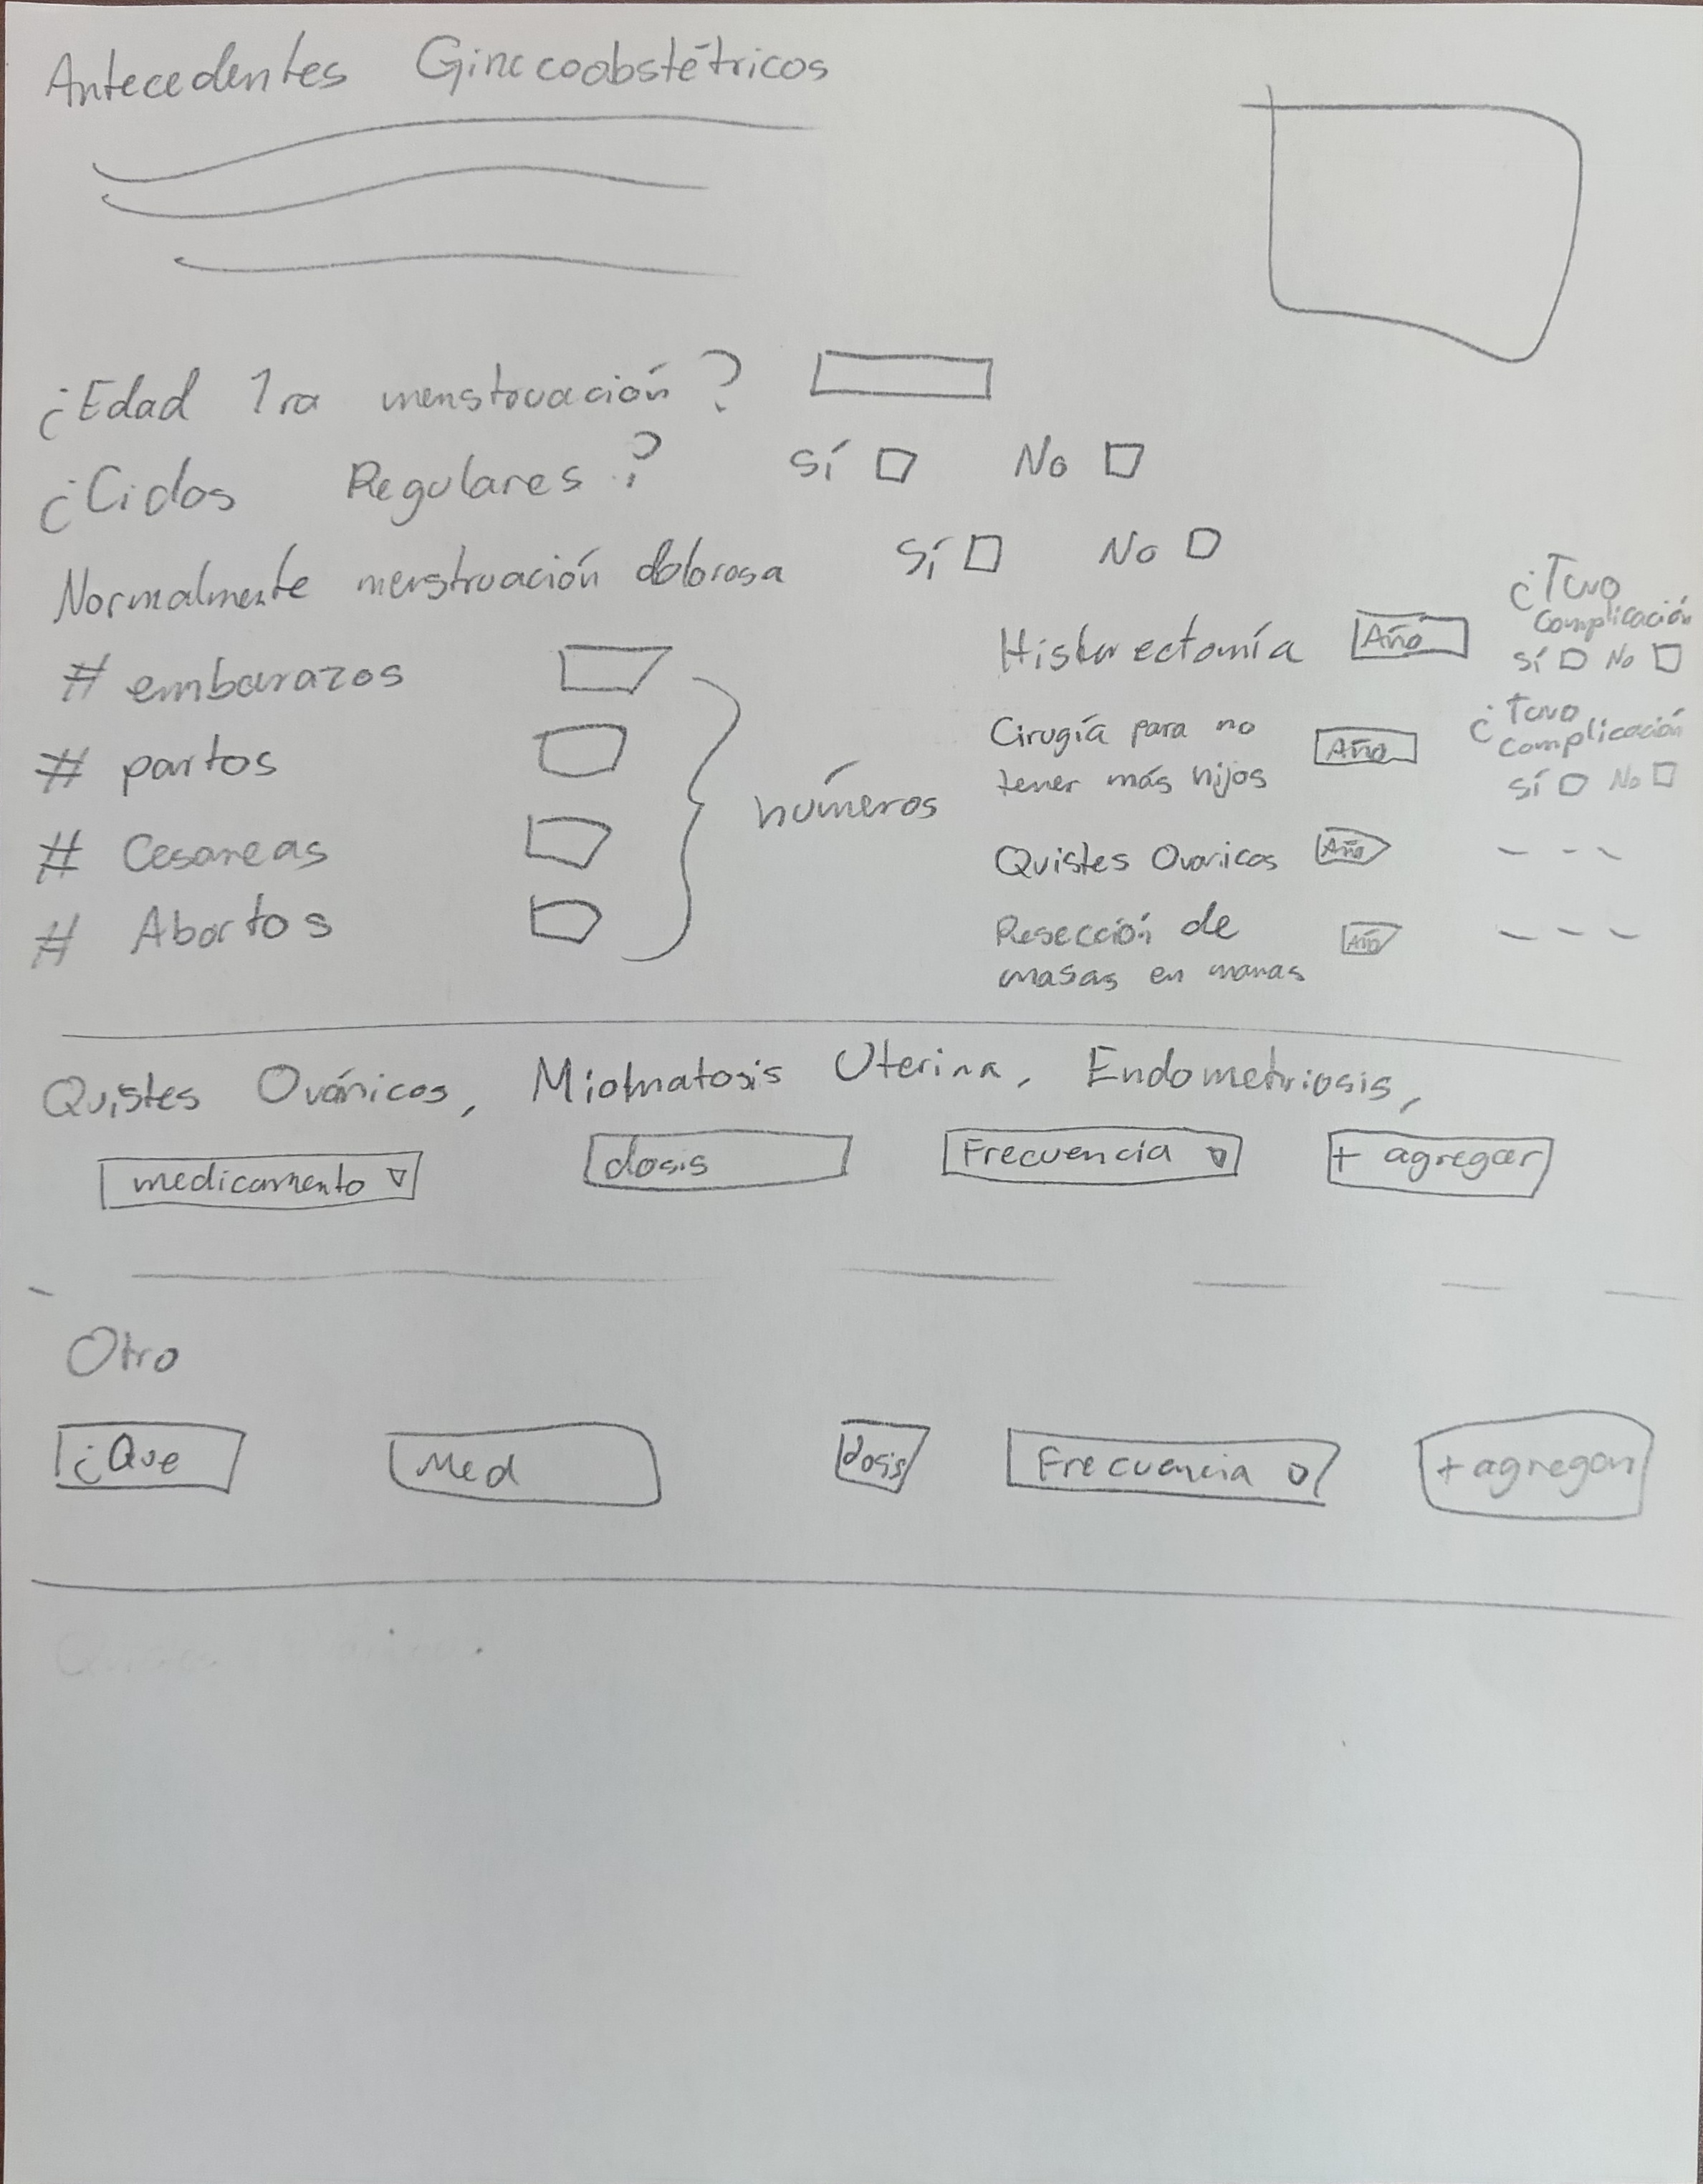 Antecedentes Ginecoobstétricos
¿Edad 1ra menstruación?
¿Ciclos Regulares?  Sí  No
Normalmente menstruación dolorosa  Sí  No
# embarazos
# partos
# Cesareas
# Abortos
números
Histerectomía  Año
¿Tuvo
complicación
Sí  No
Cirugía para no
tener más hijos  Año
¿Tuvo
complicación
Sí  No
Quistes Ovaricos  Año
Resección de
masas en mamas  Año
Quistes Ováricos, Miomatosis Uterina, Endometriosis,
medicamento  dosis  Frecuencia  + agregar
Otro
¿Que  Med  dosis  Frecuencia  + agregar